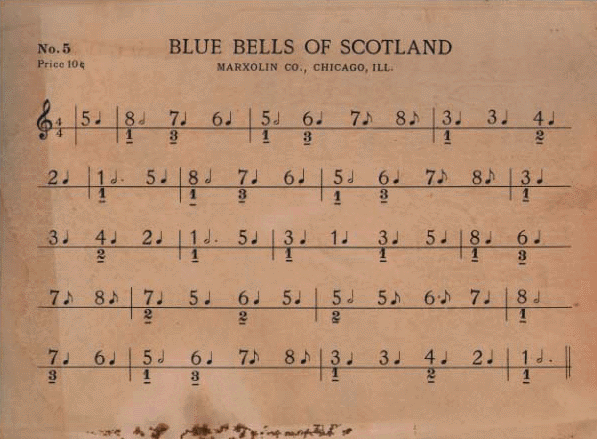 No. 5
Price 10¢
BLUE BELLS OF SCOTLAND
MARXOLIN CO., CHICAGO, ILL.
4
4
5 8 7 6 5 6 7 8 3 3 4
1 3 1 3 1 2
2 1 5 8 7 6 5 6 7 8 3
1 1 3 1 3 1
3 4 2 1 5 3 1 3 5 8 6
2 1 1 1 1 3
7 8 7 5 6 5 5 5 6 7 8
2 2 2 1
7 6 5 6 7 8 3 3 4 2 1
3 1 3 1 2 1